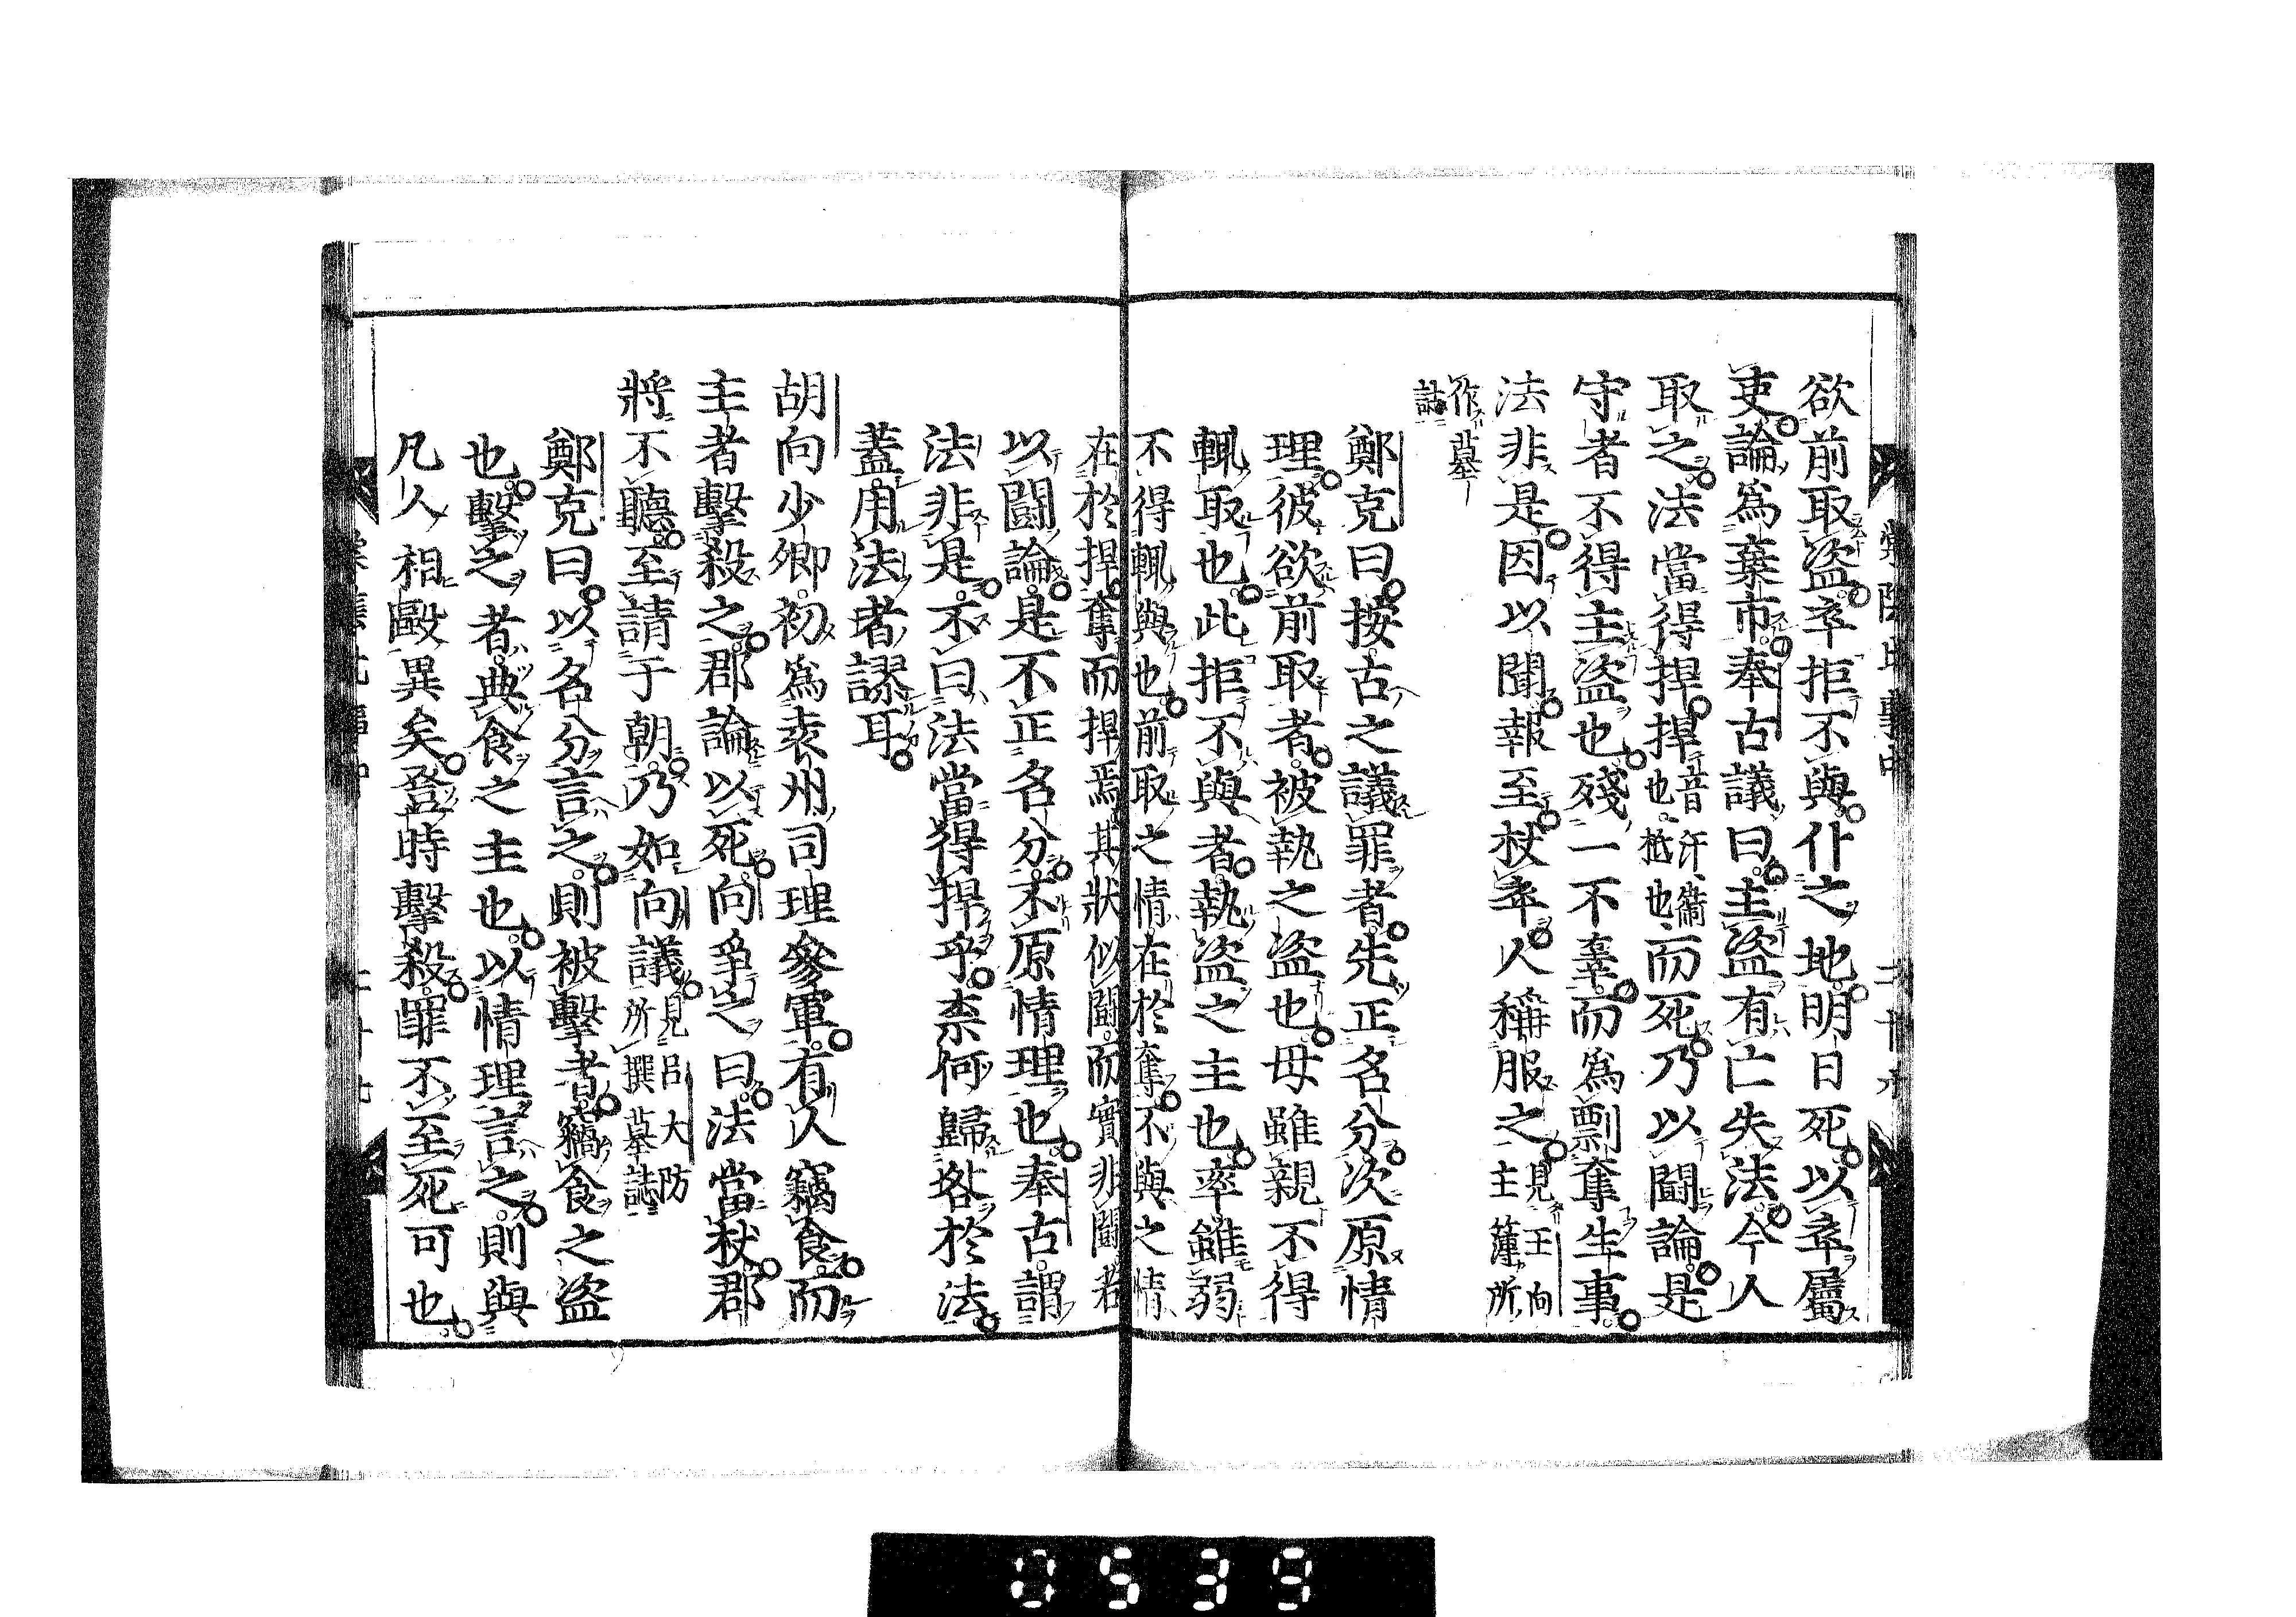 欲前取盜卒拒不與仆之地明日死以卒屬
吏論爲棄市奉古議曰主盜有亡失法今人
取之法當得捍捍音汗衛也抵也而死乃以鬪論是
守者不得主盜也殘一不辜而爲剽奪生事
法非是因以聞報至杖卒人稱服之見王向主簿所
作墓誌
鄭克曰按古之議罪者先正名分次原情
理彼欲前取者被執之盜也母雖親不得
輒取也此拒不與者執盜之主也卒雖弱
不得輒與也前取之情在於奪不與之情
在於捍奪而捍焉其狀似鬪而實非鬪若
以鬪論是不正名分不原情理也奉古謂
法非是不曰法當得捍乎柰何歸咎於法
蓋用法者謬耳
胡向少卿初爲袁州司理參軍有人竊食而
主者擊殺之郡論以死向爭之曰法當杖郡
將不聽至請于朝乃如向議見呂大防所撰墓誌
鄭克曰以名分言之則被擊者竊食之盜
也擊之者典食之主也以情理言之則與
凡人相毆異矣登時擊殺罪不至死可也
0539